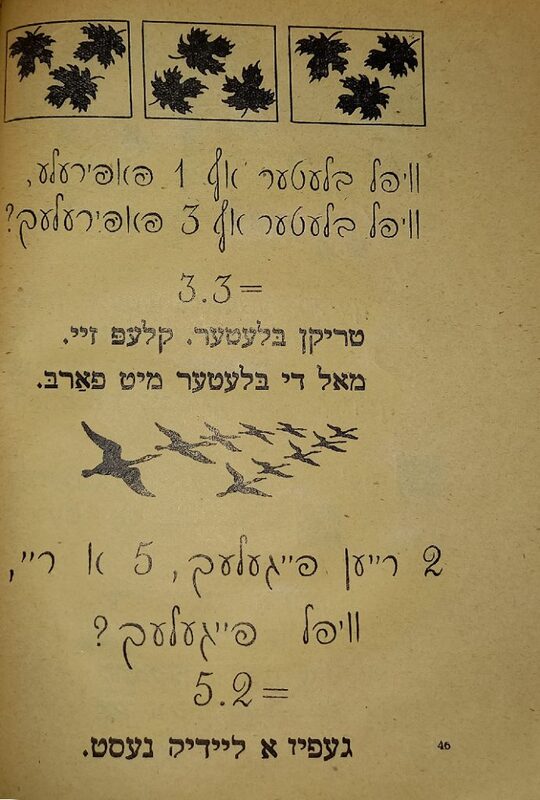 וויפל בלעטער אף 1 פּאפּירעלע,
וויפל בלעטער אף 3 פּאפּירעלעך?
3.3=
טריקן בּלעטער. קלעפּ זיי.
מאל די בּלעטער מיט פאַרבּ.
2 רייען פייגעלעך, 5 א ריי,
וויפל פייגעלעך?
5.2=
געפין א ליידיק נעסט.
46